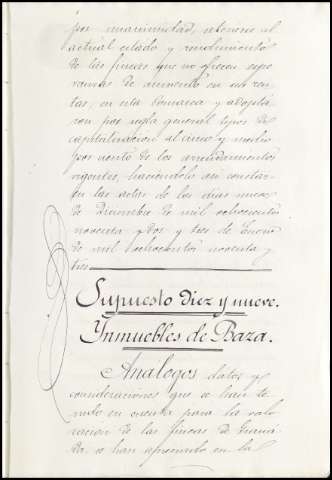 por unanimidad, atencion al
actual estado y rendimiento
de las fincas, que no ofrecen espe-
ranzas de aumento en su ren-
tas, en esta comarca y adopta-
ron por regla general tipos de
capitalizacion al cinco y medio
por ciento de los arrendamientos
vigentes, haciéndolo asi constar
en las actas de los dias nueve
de Diciembre de mil ochocientos
noventa y dos y tres de Enero
de mil ochocientos noventa y
tres
Supuesto diez y nueve.
Ynmuebles de Baza.
Análogos datos y
consideraciones que se han te-
nido en cuenta para la valo-
racion de las fincas de Grana-
da, se han apreciado en la